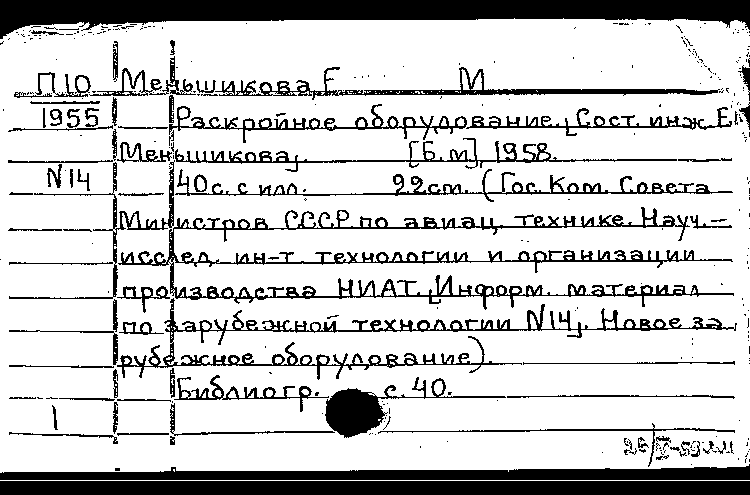 П10 Меньшикова, Е М
1955 Раскройное оборудование. [Сост. инж. Е
Меньшикова]. [Б. м], 1958.
N14 40с. с илл. 22см. (Гос. Ком. Совета
Министров СССР по авиац. технике. Науч.-
исслед. ин-т технологии и организации
производства НИАТ. [Информ. материал
по зарубежной технологии N14]. Новое за
рубежное оборудование).
Библиогр. с. 40.
1